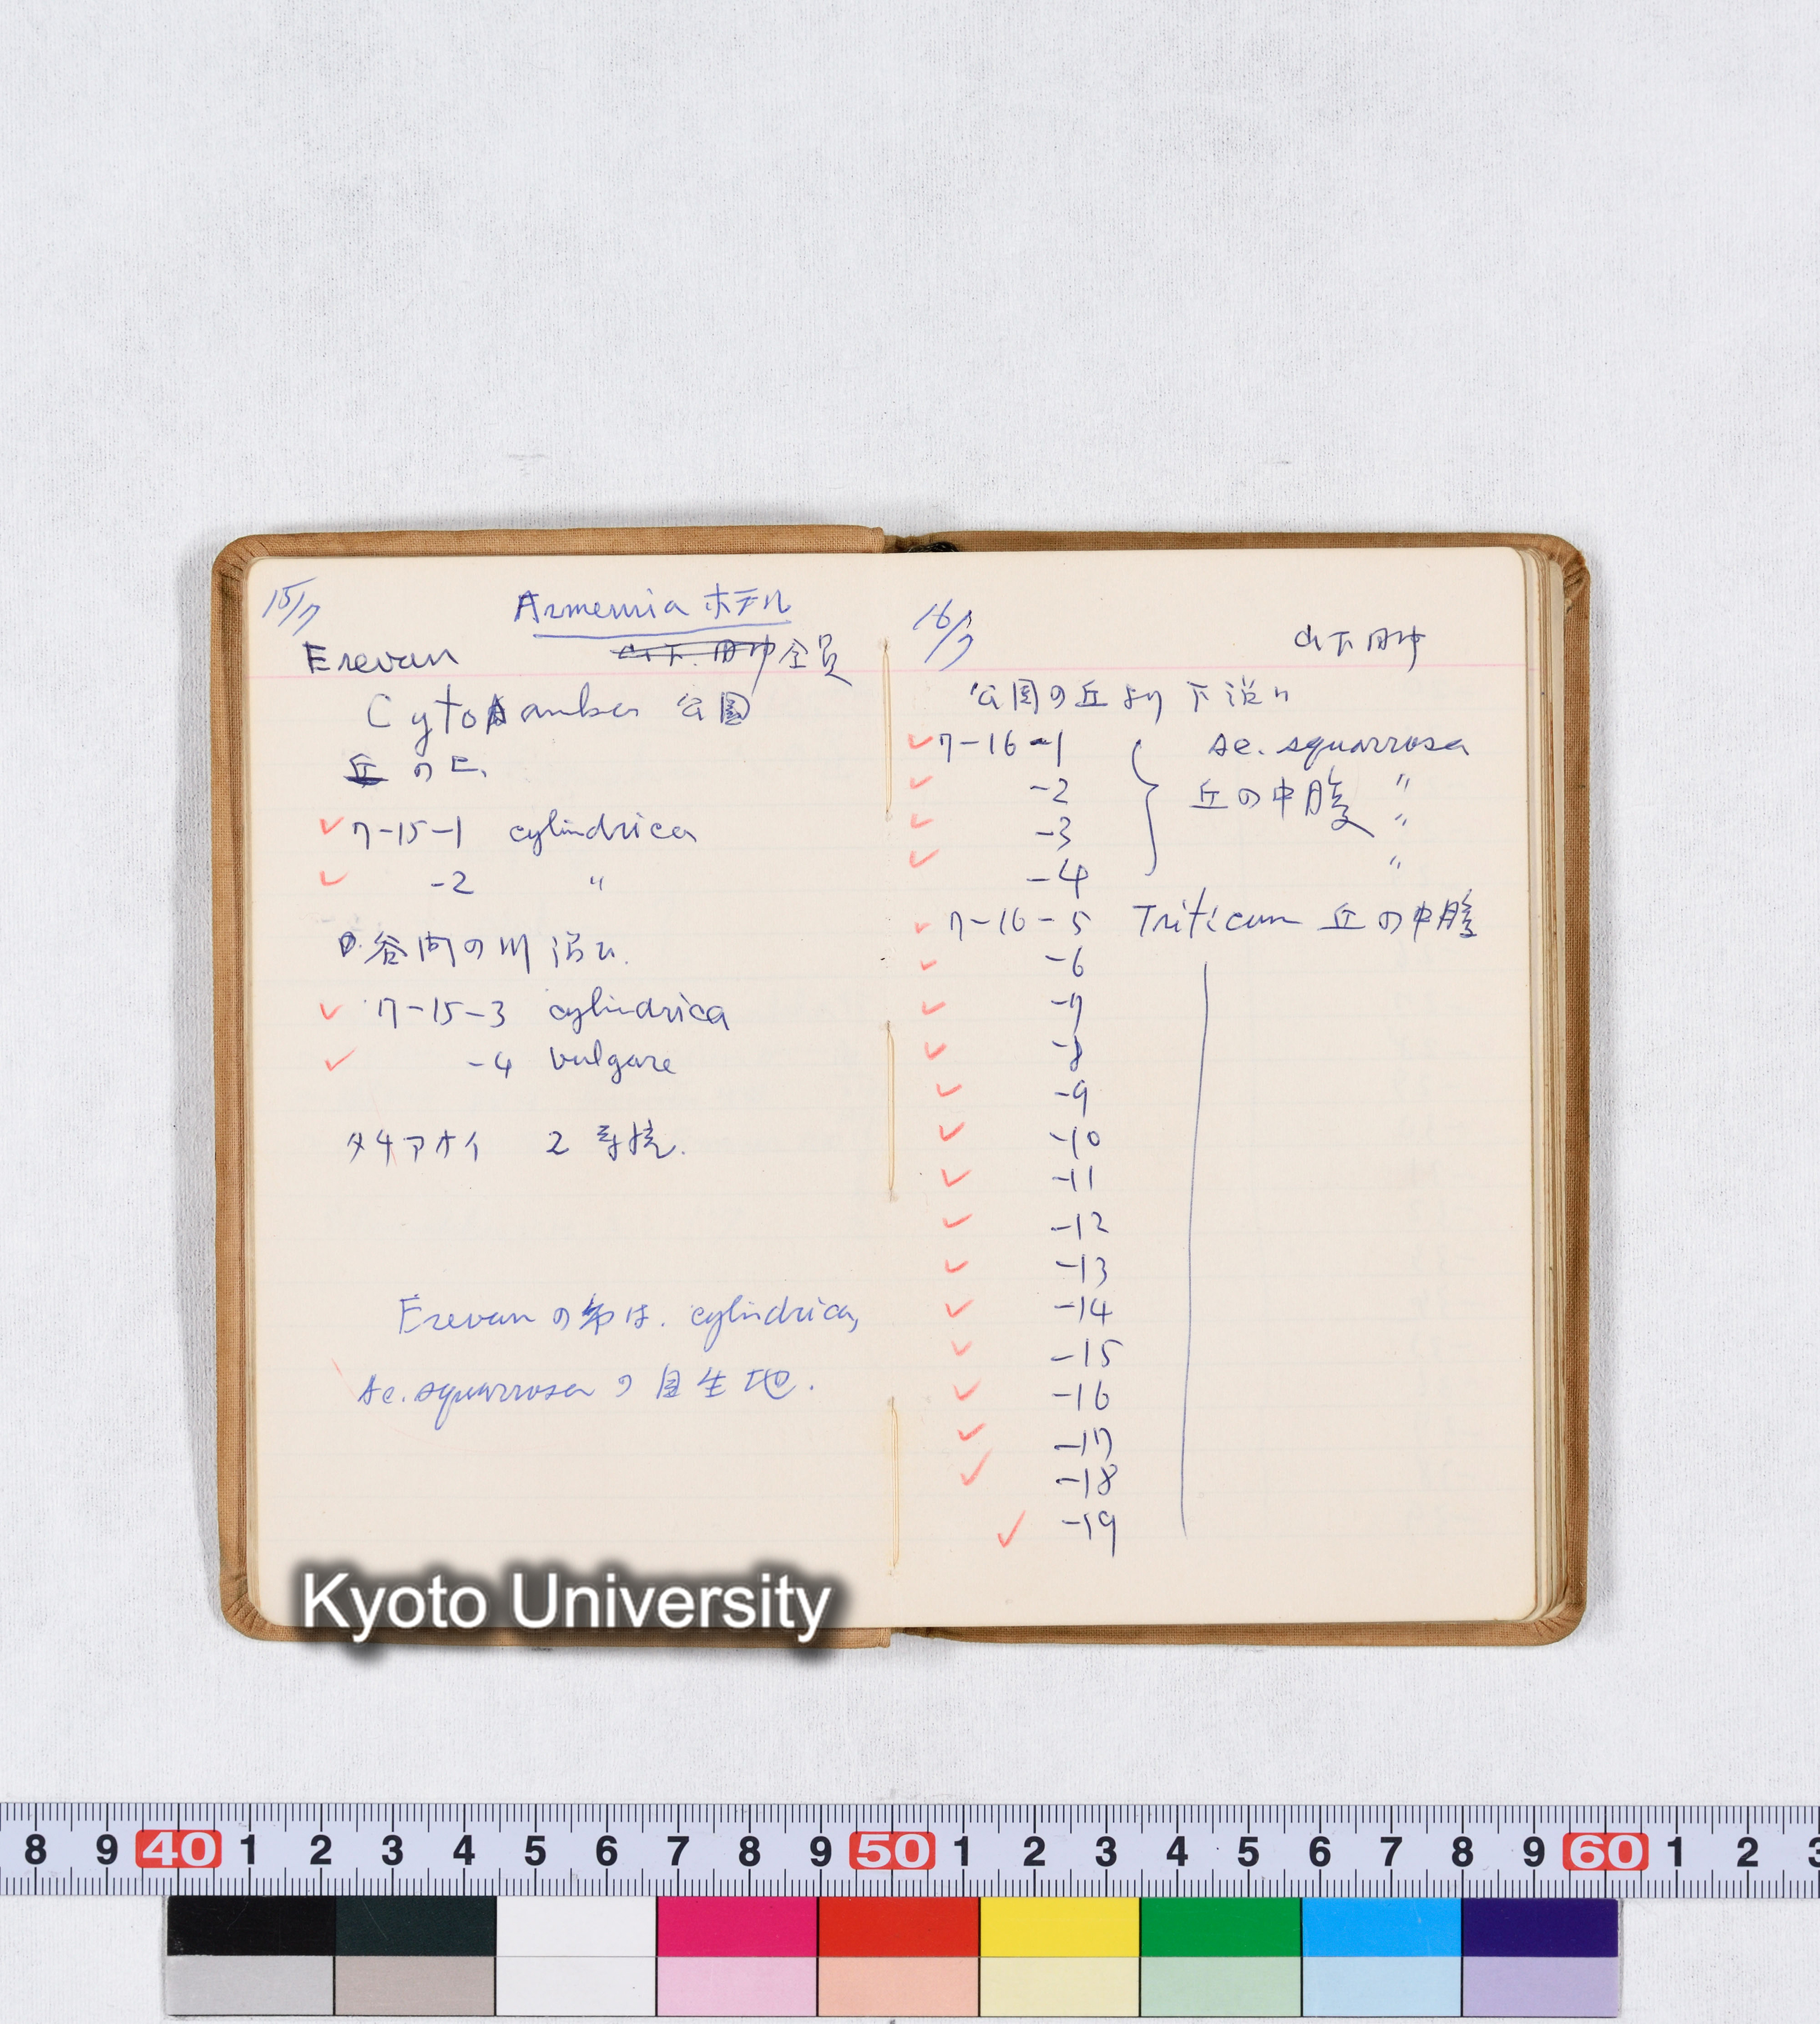 15/7
Armenia ホテル
Erevan
山下.田中 全員
Cyto amber 公園
丘の上
7-15-1 cylindrica
-2 〃
谷間の川沿ひ.
7-15-3 cylindrica
-4 vulgare
タチアオイ 2系統.
Erevanの市は. cylindrica,
Ae. squarrosaの自生地.
16/7
山下 田中
公園の丘より下沿ひ
7-16-1 Ae. squarrosa
-2 丘の中腹 〃
-3 〃
-4 〃
7-16-5 Triticum 丘の中腹
-6
-7
-8
-9
-10
-11
-12
-13
-14
-15
-16
-17
-18
-19
Kyoto University
8 9 40 1 2 3 4 5 6 7 8 9 50 1 2 3 4 5 6 7 8 9 60 1 2 3